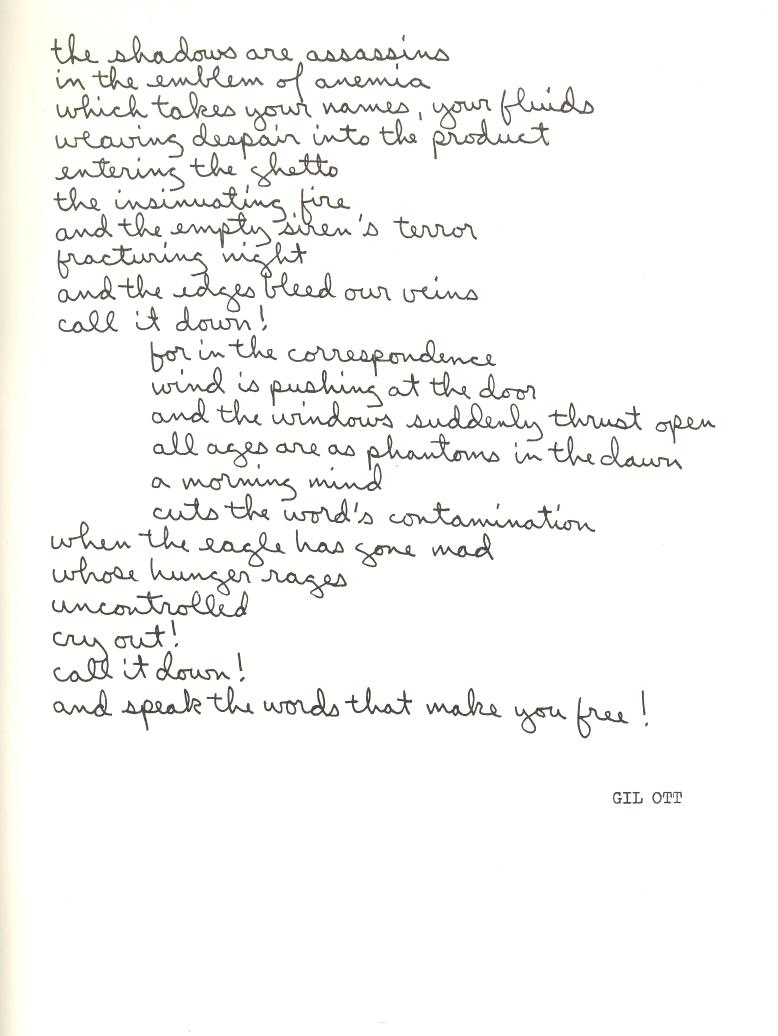 the shadows are assassins
in the emblem of anemia
which takes your names, your fluids
weaving despair into the product
entering the ghetto
the insinuating fire
and the empty siren's terror
fracturing night
and the edges bleed our veins
call it down!
for in the correspondence
wind is pushing at the door
and the windows suddenly thrust open
all ages are as phantoms in the dawn
a morning mind
cuts the word's contamination
when the eagle has gone mad
whose hunger rages
uncontrolled
cry out!
call it down!
and speak the words that make you free!
GIL OTT